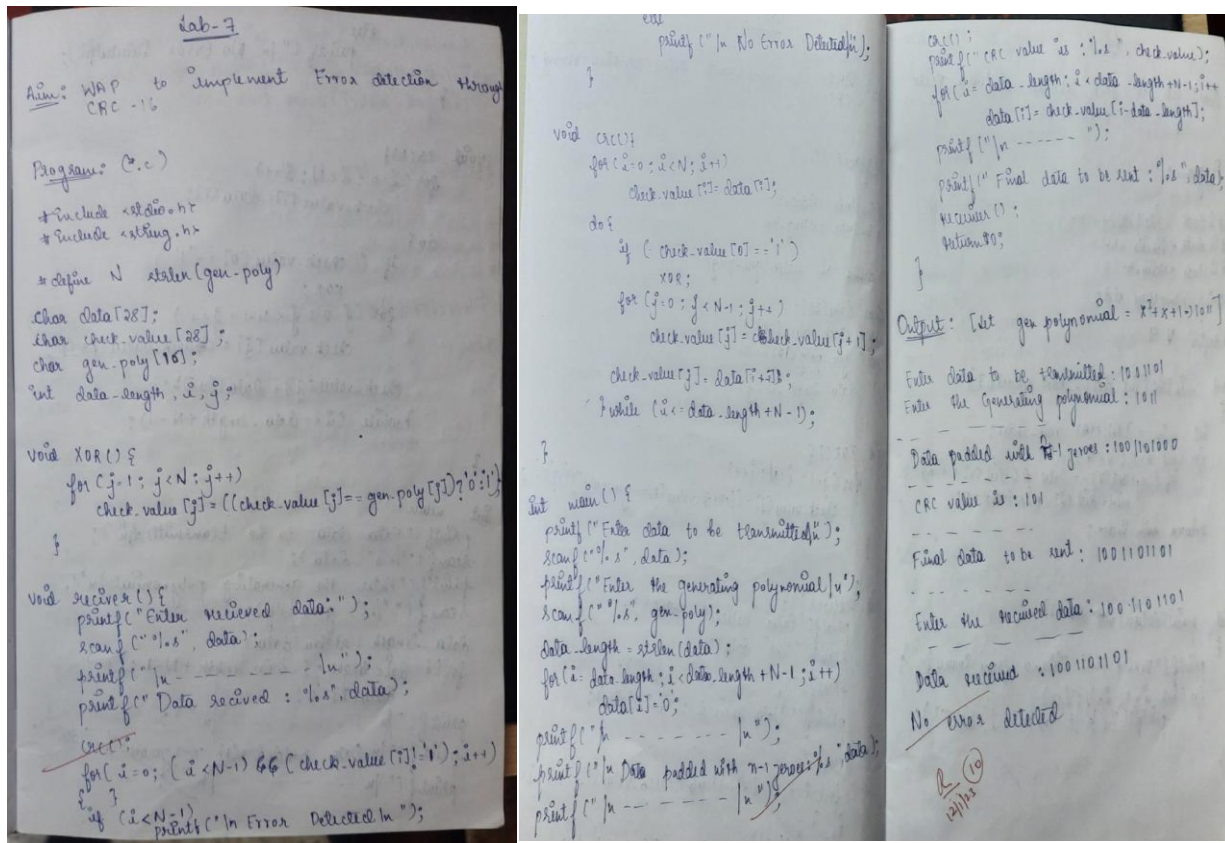 Lab-7
Aim: WAP to implement Error detection through
CRC-16
Program: (*.c)
#include <stdio.h>
#include <string.h>
#define N strlen(gen-poly)
char data[28];
char check-value[28];
char gen-poly[10];
int data-length, i, j;
void XOR(){
for(j=1; j<N; j++)
check-value[j]=((check-value[j]==gen-poly[j])?'0':'1');
}
void reciver(){
printf("Enter recieved data:");
scanf("%s", data);
printf("\n - - - - - - - \n");
printf("Data recived : %s", data);
crc();
for(i=0; (i<N-1) && (check-value[i]!='1'); i++)
{ }
if (i<N-1)
printf("\n Error Detected \n");
else
printf("\n No Error Detected\n");
}
void crc(){
for(i=0; i<N; i++)
check-value[i]=data[i];
do{
if (check-value[0]=='1')
XOR;
for(j=0; j<N-1; j++)
check-value[j]=check-value[j+1];
check-value[j]=data[i++];
}while (i<=data-length+N-1);
}
int main(){
printf("Enter data to be transmitted\n");
scanf("%s", data);
printf("Enter the generating polynomial \n");
scanf("%s", gen-poly);
data-length=strlen(data);
for(i=data-length; i<data-length+N-1; i++)
data[i]='0';
printf("\n - - - - - - - - \n");
printf("\n Data padded with n-1 zeroes:%s", data);
printf("\n - - - - - - - - \n");
crc();
printf("CRC value is : %s", check-value);
for(i=data-length; i<data-length+N-1; i++
data[i]=check-value[i-data-length];
printf("\n - - - - - - ");
printf("Final data to be sent : %s", data);
receiver();
return 0;
}
Output: [let gen polynomial = x³+x+1=)1011]
Enter data to be transmitted : 1001101
Enter the Generating polynomial : 1011
- - - - - - - - - -
Data padded with n-1 zeroes : 1001101000
- - - - - -
CRC value is : 101
- - - - -
Final data to be sent : 1001101101
- - - - - - -
Enter the recieved data : 1001101101
- - - - - - -
Data received : 1001101101
No error detected
10
12/1/23